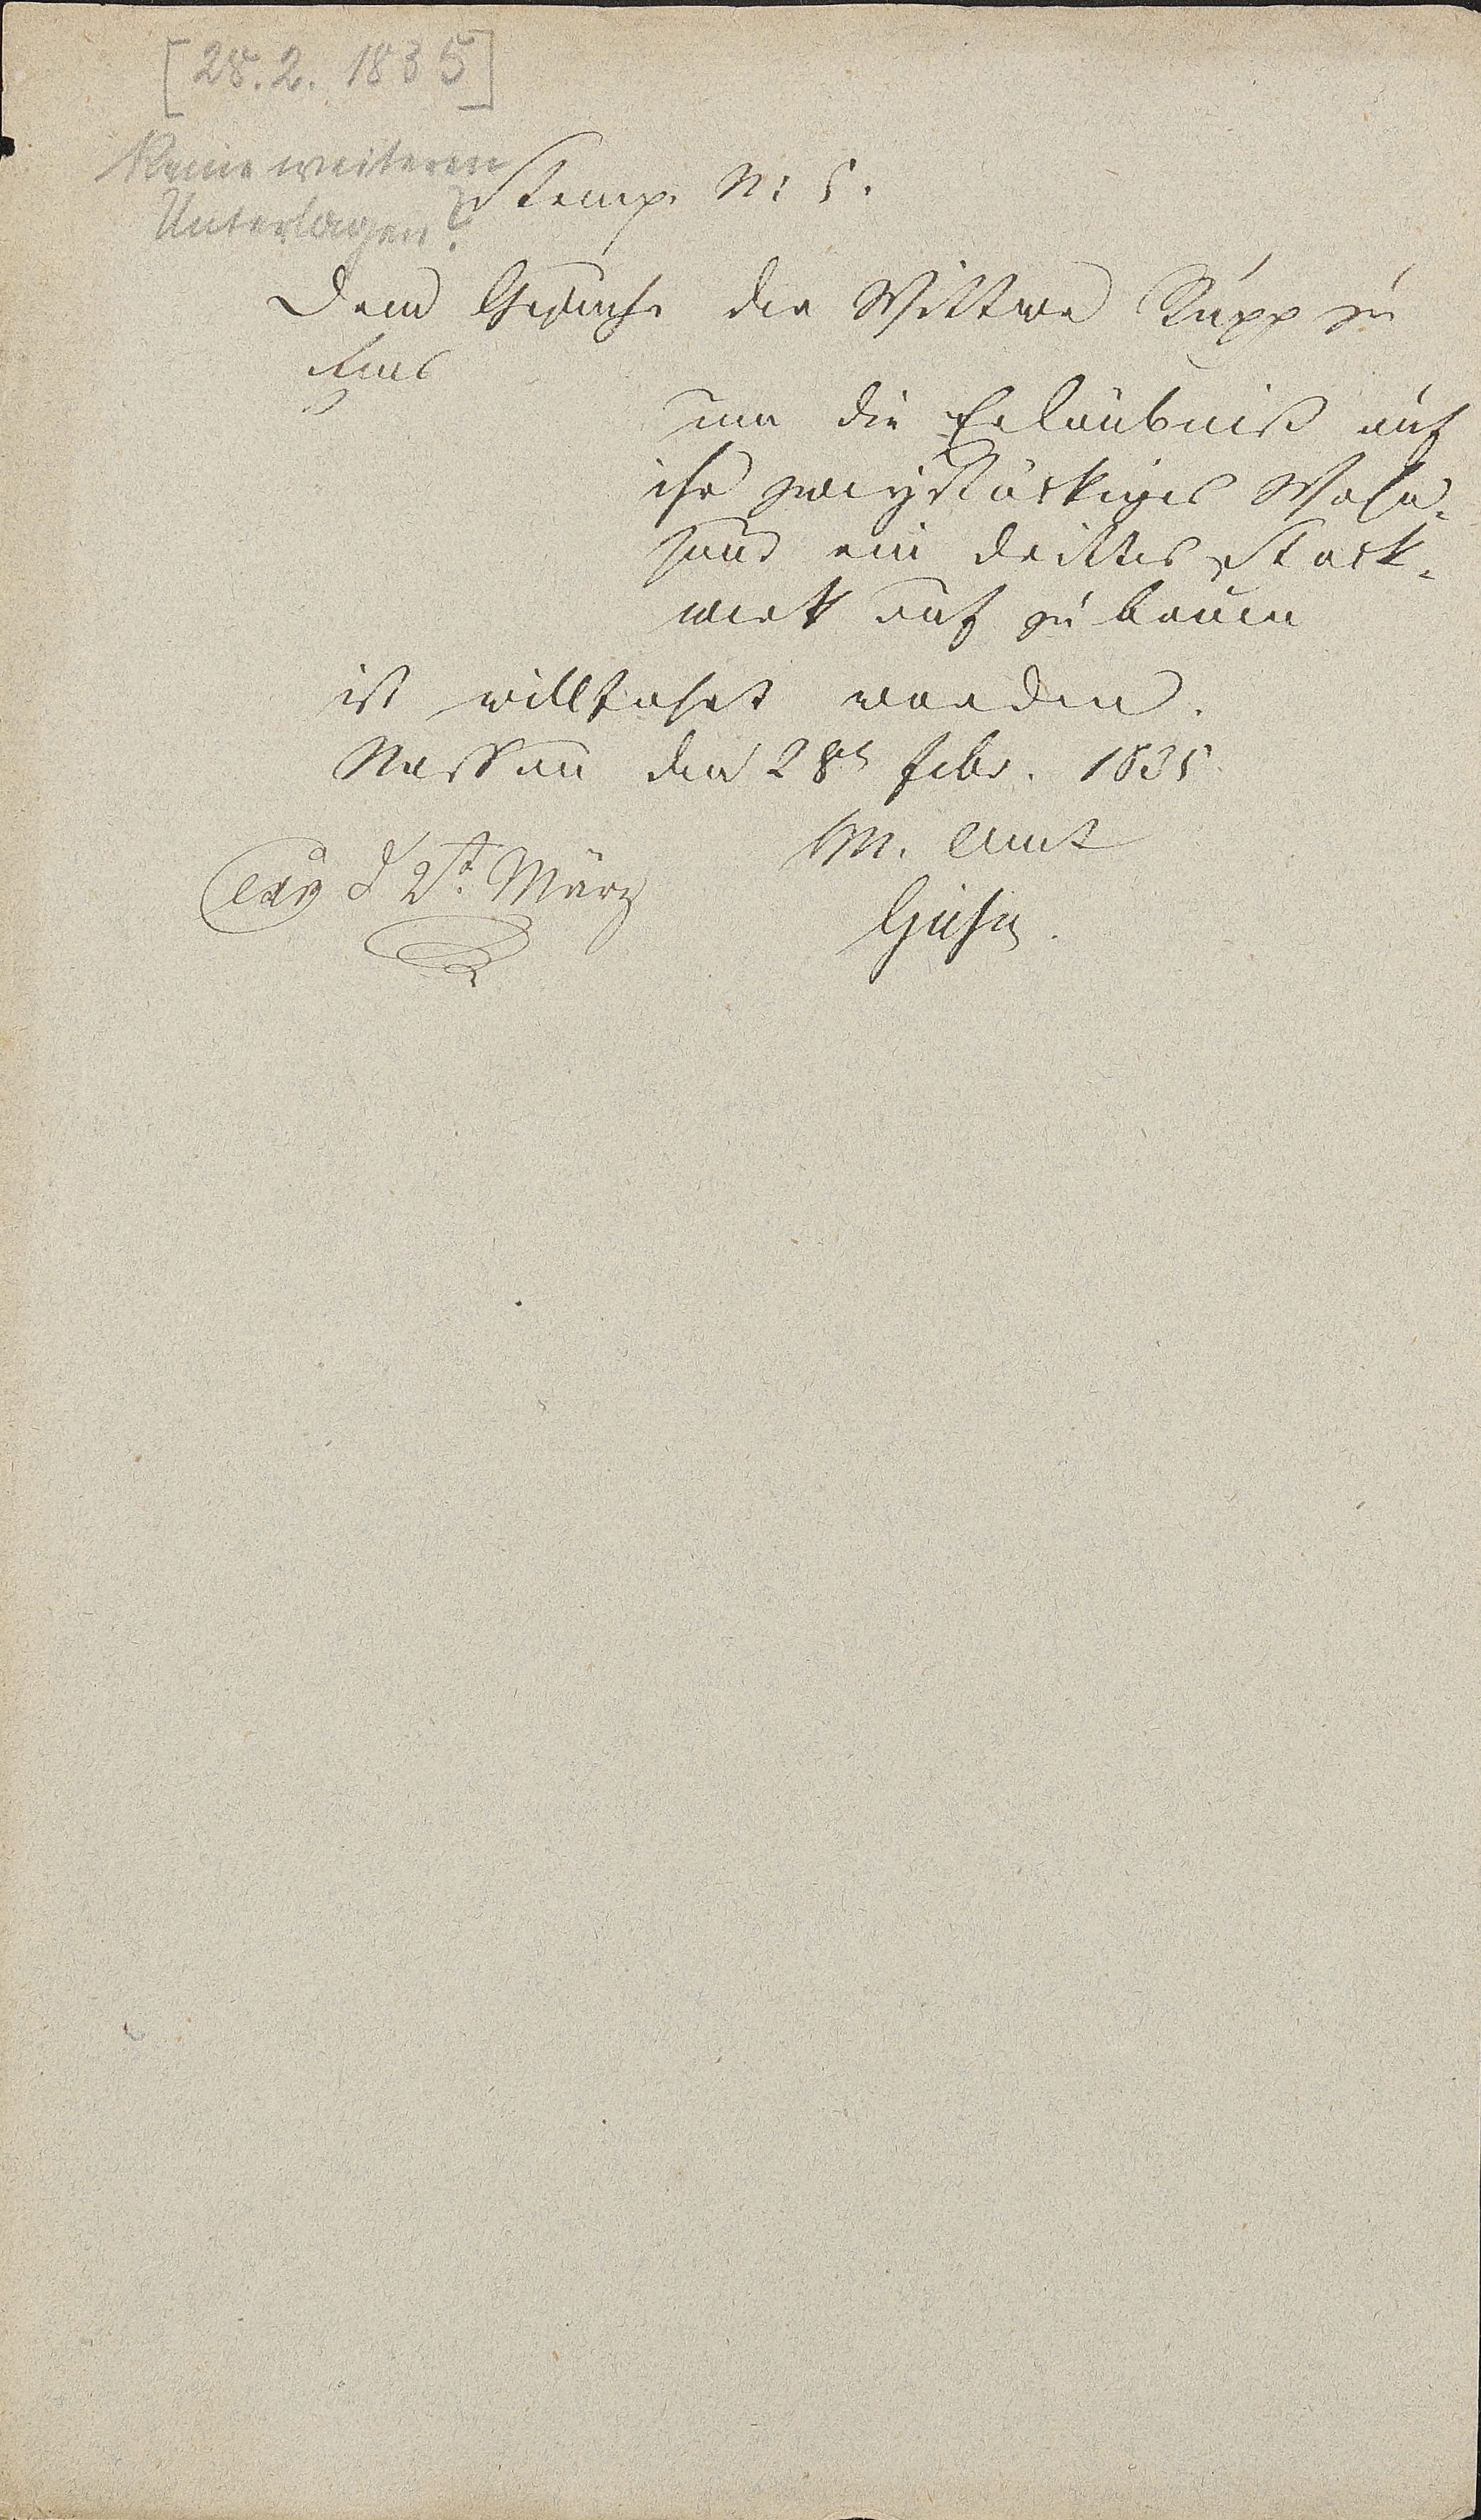 [28.2.1835]
Keine weiteren
Unterlagen?
Stemp. N: 5.
Dem Gesuche der Wittwe Rupp zu
Ems
um die Erlaubniß auf
ihr zweystöckiges Wohn-
haus ein drittes Stock-
werk auf zu bauen
ist willfahrt worden.
Nassau den 28n Febr. 1835
Amt
exp d 2t. März